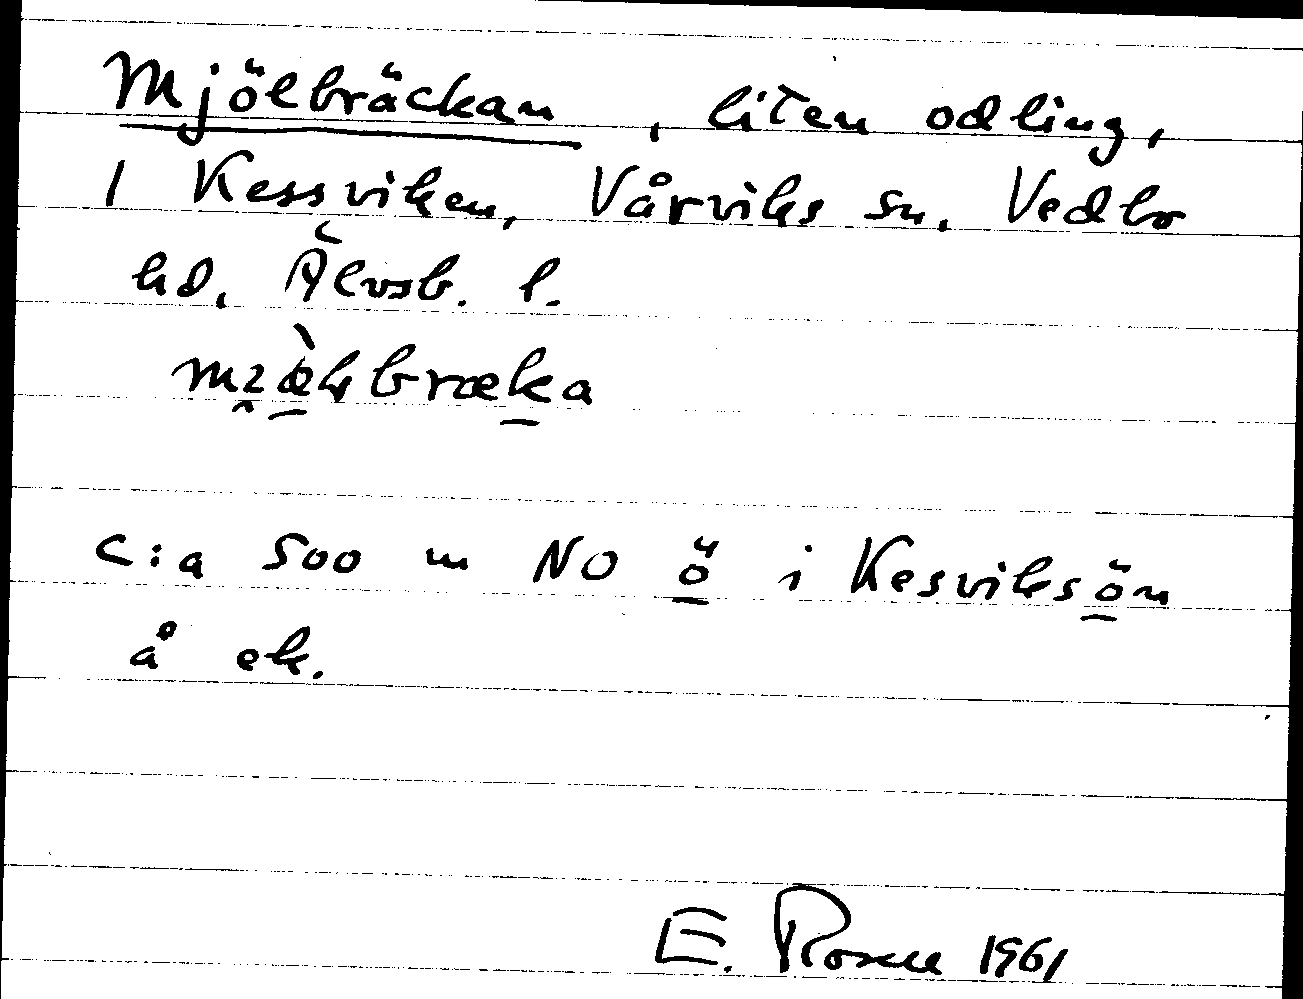 Mjölbräckan, liten odling,
1 Kessviken, Vårviks sn, Vedbo
hd, Älvsb. l.
c:a 500 m NO ö i Kesviksön
å ek.
E. Rosell 1961